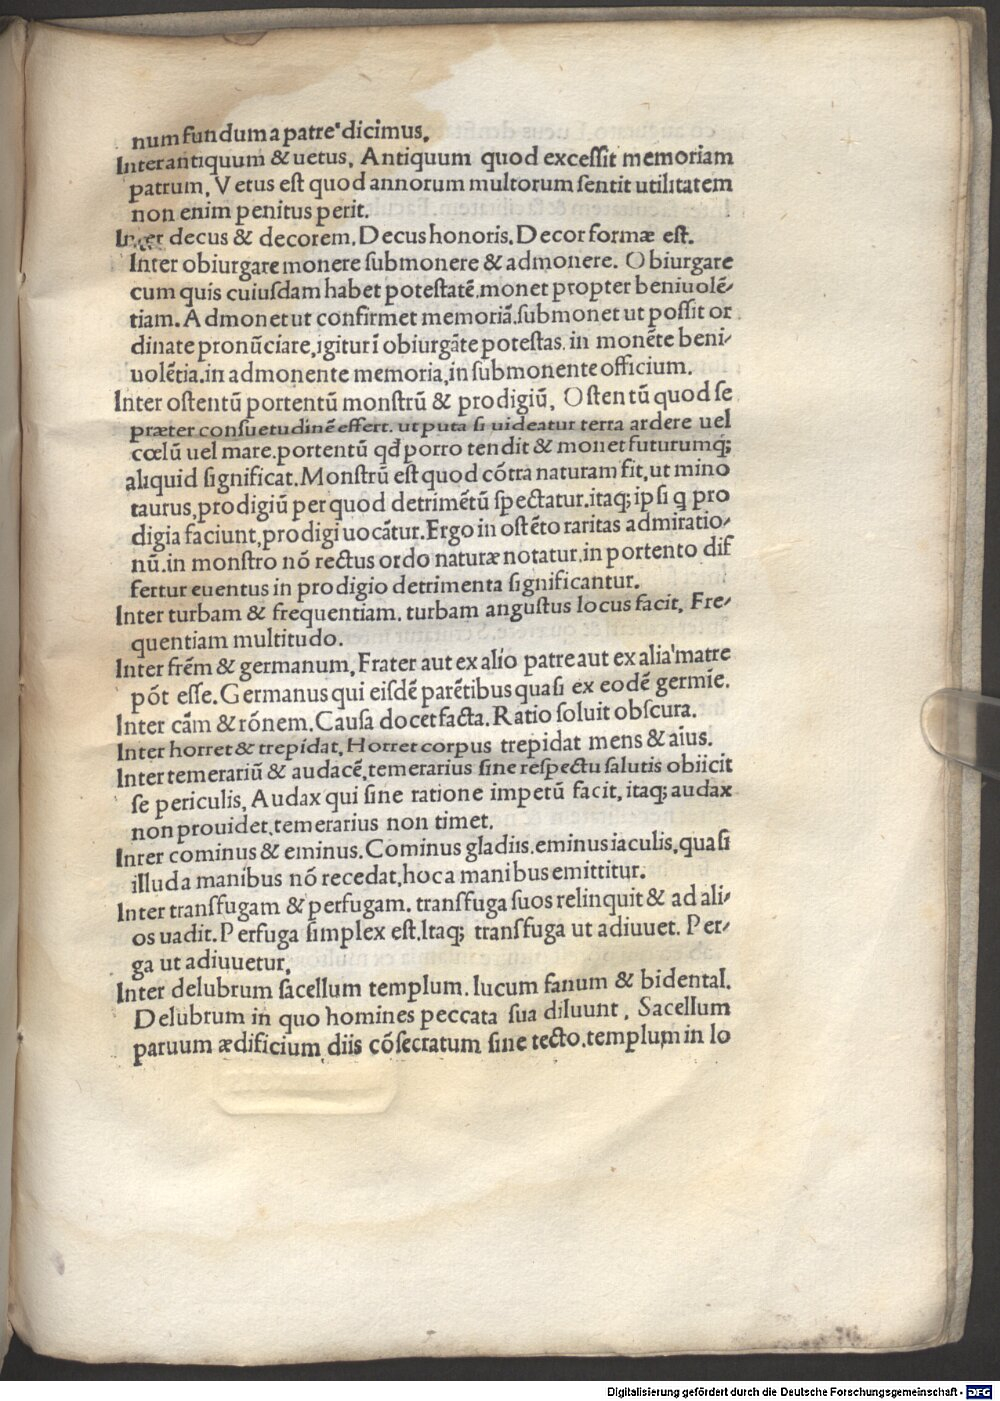 num fundum a patre dicimus.
Inter antiquum & uetus, Antiquum quod excessit memoriam
patrum, Vetus est quod annorum multorum sentit utilitatem
non enim penitus perit.
Inter decus & decorem. Decus honoris. Decor formæ est.
Inter obiurgare monere submonere & admonere. Obiurgare
cum quis cuiusdam habet potestatē. monet propter beniuolē/
tiam. Admonet ut confirmet memoriā. submonet ut possit or
dinate pronūciare, igitur ī obiurgāte potestas. in monēte beni/
uolētia. in admonente memoria, in submonente officium.
Inter ostentū portentū monstrū & prodigiū, Ostentū quod se
præter consuetudinē effert. ut puta si uideatur terra ardere uel
cœlū uel mare. portentū qđ porro tendit & monet futurumq;
aliquid significat. Monstrū est quod cōtra naturam fit, ut mino
taurus, prodigiū per quod detrimētū spectatur. itaq; ipsi q pro
digia faciunt, prodigi uocātur. Ergo in ostēto raritas admiratio/
nū. in monstro nō rectus ordo naturæ notatur. in portento dif
fertur euentus in prodigio detrimenta significantur.
Inter turbam & frequentiam. turbam angustus locus facit, Fre/
quentiam multitudo.
Inter frēm & germanum, Frater aut ex alio patre aut ex alia matre
pōt esse. Germanus qui eisdē parētibus quasi ex eodē germīe.
Inter cām & rōnem. Causa docet facta. Ratio soluit obscura.
Inter horret & trepidat, Horret corpus trepidat mens & aīus.
Inter temerariū & audacē, temerarius sine respectu salutis obiicit
se periculis, Audax qui sine ratione impetū facit, itaq; audax
non prouidet. temerarius non timet.
Inrer cominus & eminus. Cominus gladiis. eminus iaculis, quasi
illud a manibus nō recedat, hoc a manibus emittitur.
Inter transfugam & perfugam. transfuga suos relinquit & ad ali/
os uadit. Perfuga simplex est. Itaq; transfuga ut adiuuet. Per/
ga ut adiuuetur.
Inter delubrum sacellum templum. lucum fanum & bidental.
Delubrum in quo homines peccata sua diluunt, Sacellum
paruum ædificium diis cōsecratum sine tecto. templum in lo
Digitalisierung gefördert durch die Deutsche Forschungsgemeinschaft - DFG